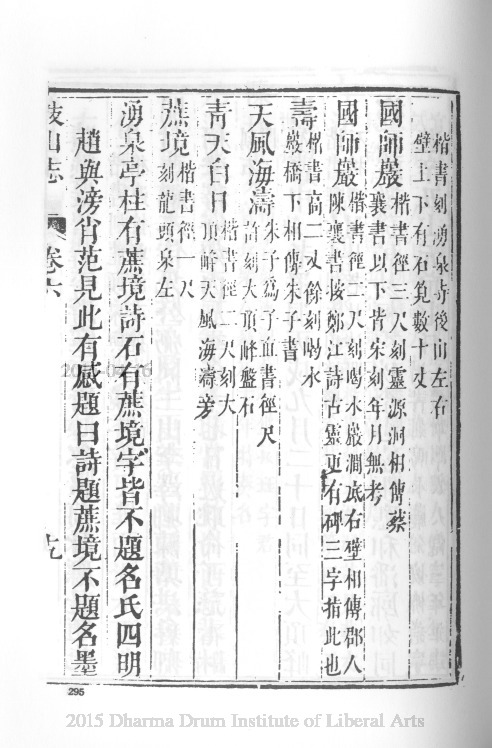 楷書刻湧泉寺後山左右
壁上下有石筧數十丈
國師巖楷書徑三尺刻靈源洞相傳蔡
襄書以下皆宋刻年月無考
國師巖楷書徑二尺刻喝水巖澗底右壁相傳郡人
陳襄書按鄭江詩古靈更有碑三字指此也
壽楷書高二丈餘刻喝水
巖橋下相傳朱子書
天風海濤朱子爲子直書徑尺
許刻大頂峰盤石
靑天白日楷書徑二尺刻大
頂峰天風海濤旁
蔗境楷書徑一尺
刻龍頭泉左
湧泉亭柱有蔗境詩石有蔗境字皆不題名氏四明
趙與滂肖范見此有感題曰詩題蔗境不題名墨
鼓山志
卷六
十九
295
2015 Dharma Drum Institute of Liberal Arts